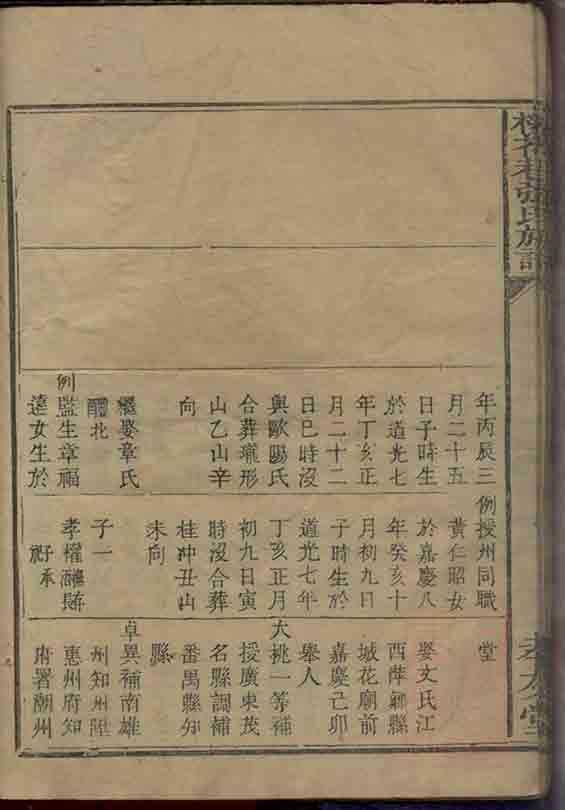 張氏族譜
年丙辰三
月二十五
日子時生
於道光七
年丁亥正
月二十二
日巳時沒
與歐陽氏
合葬瓏形
山乙山辛
向
繼娶章氏
醴北
例監生章福
達女生於
例授州同職
黃仁昭女
於嘉慶八
年癸亥十
月初九日
子時生於
道光七年
丁亥正月
初九日寅
時沒合葬
桂冲丑山
未向
子一
孝權
承
堂
娶文氏江
西萍鄉縣
城花廟前
嘉慶己卯
舉人
大挑一等補
授廣東茂
名縣調補
番禺縣知
縣
卓異補南雄
州知州陞
惠州府知
府署潮州
孝友堂